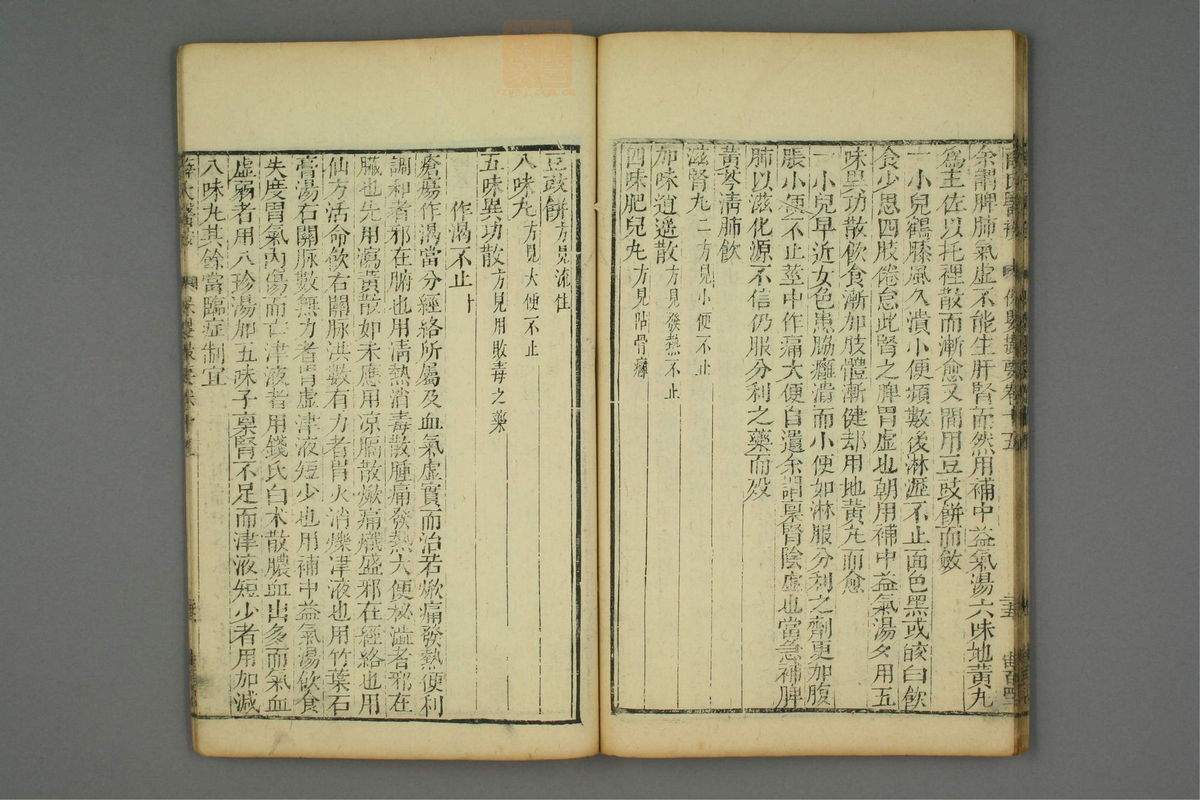 余謂脾肺氣虛不能生肝腎而然用補中益氣湯六味地黃丸
爲主佐以托裡散而漸愈又間用豆豉餅而斂
一小兒鶴膝風久潰小便頻數後淋瀝不止面色黑或皎白飲
食少思四肢倦怠此腎之脾胃虛也朝用補中益氣湯夕用五
味異功散飲食漸加肢體漸健却用地黃丸而愈
一小兒早近女色患脇癰潰而小便如淋服分利之劑更加腹
脹小便不止莖中作痛大便自遺余謂稟腎陰虛也當急補脾
肺以滋化源不信仍服分利之藥而歿
黃芩清肺飲
滋腎丸二方見小便不止
加味逍遙散方見發熱不止
四味肥兒丸方見貼骨癰
豆豉餅方見流注
八味丸方見大便不止
五味異功散方見用敗毒之藥
作渴不止十
瘡瘍作渴當分經絡所屬及血氣虛實而治若焮痛發熱便利
調和者邪在腑也用清熱消毒散腫痛發熱大便秘澁者邪在
臟也先用瀉黃散如未應用凉膈散焮痛熾盛邪在經絡也用
仙方活命飲右關脉洪數有力者胃火消爍津液也用竹葉石
膏湯右關脉數無力者胃虛津液短少也用補中益氣湯飲食
失度胃氣內傷而亡津液者用錢氏白术散膿血出多而氣血
虛弱者用八珍湯加五味子稟腎不足而津液短少者用加減
八味丸其餘當臨症制宜